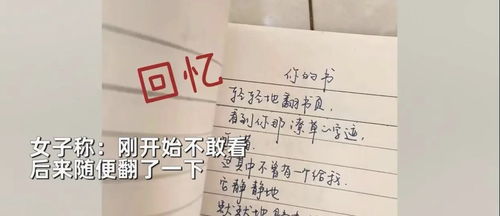 回忆
你的书
轻轻地翻书页
看到你那潦草的字迹
这其中不曾有一个给我
它静静地
默默地
女子称：刚开始不敢看
后来随便翻了一下